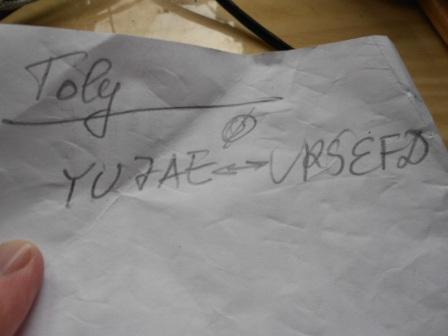 Toly
YUJAE ↔ URSEFD